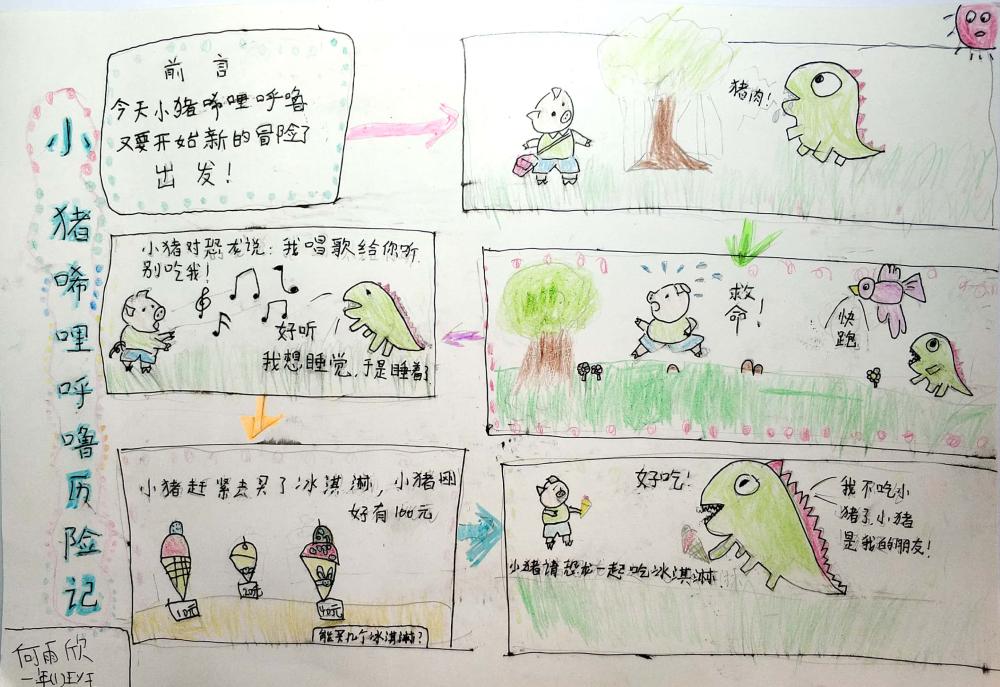 小猪唏哩呼噜历险记
前言
今天小猪唏哩呼噜
又要开始新的冒险了
出发！
猪肉！
救
命！
快
跑
小猪对恐龙说：我唱歌给你听
别吃我！
好听
我想睡觉，于是睡着了
小猪赶紧去买了冰淇淋，小猪刚
好有100元
10元
40元
能买几个冰淇淋？
好吃！
我不吃小
猪了，小猪
是我的朋友！
小猪请恐龙一起吃冰淇淋
何雨欣